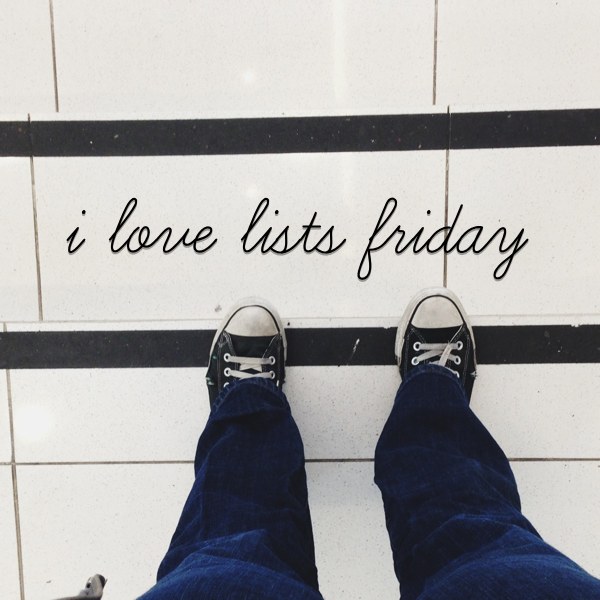 i love lists friday